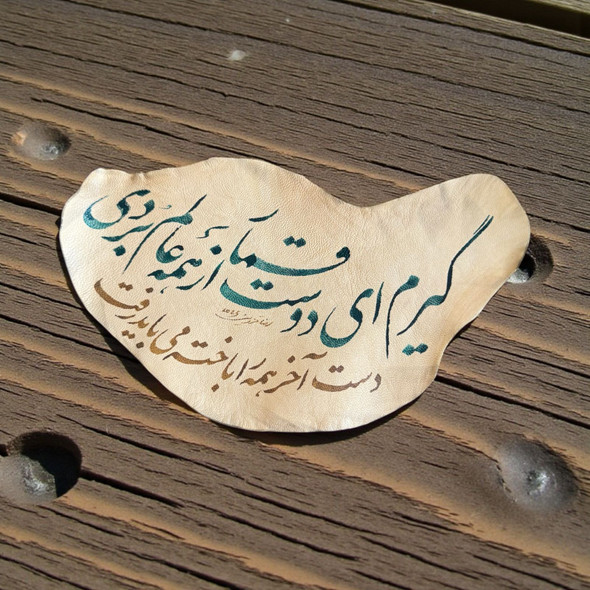 گیرم ای دوست قمار از همه عالم بردی
دست آخر همه را باخته می باید رفت